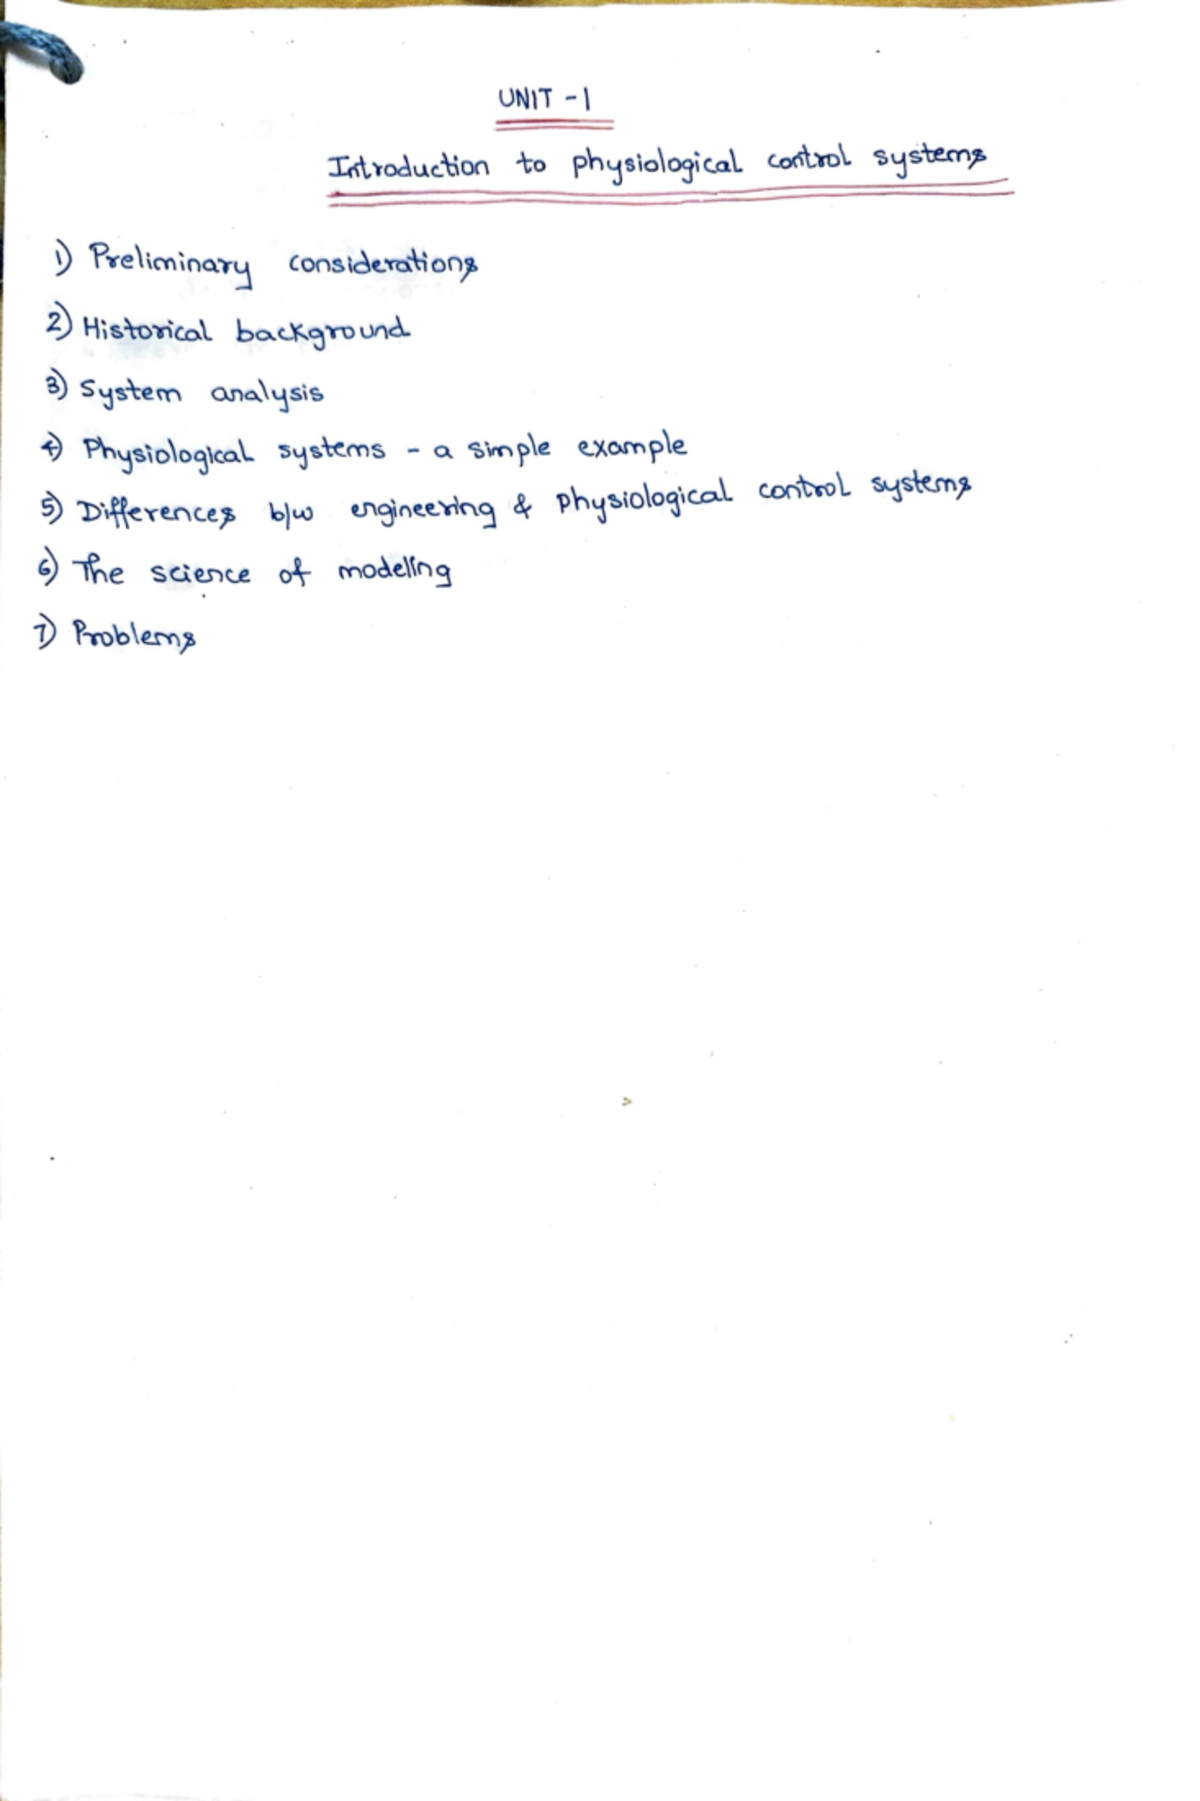 UNIT - 1
Introduction to physiological control systems
1) Preliminary considerations
2) Historical background
3) System analysis
4) Physiological systems - a simple example
5) Differences b/w engineering & physiological control systems
6) The science of modeling
7) Problems